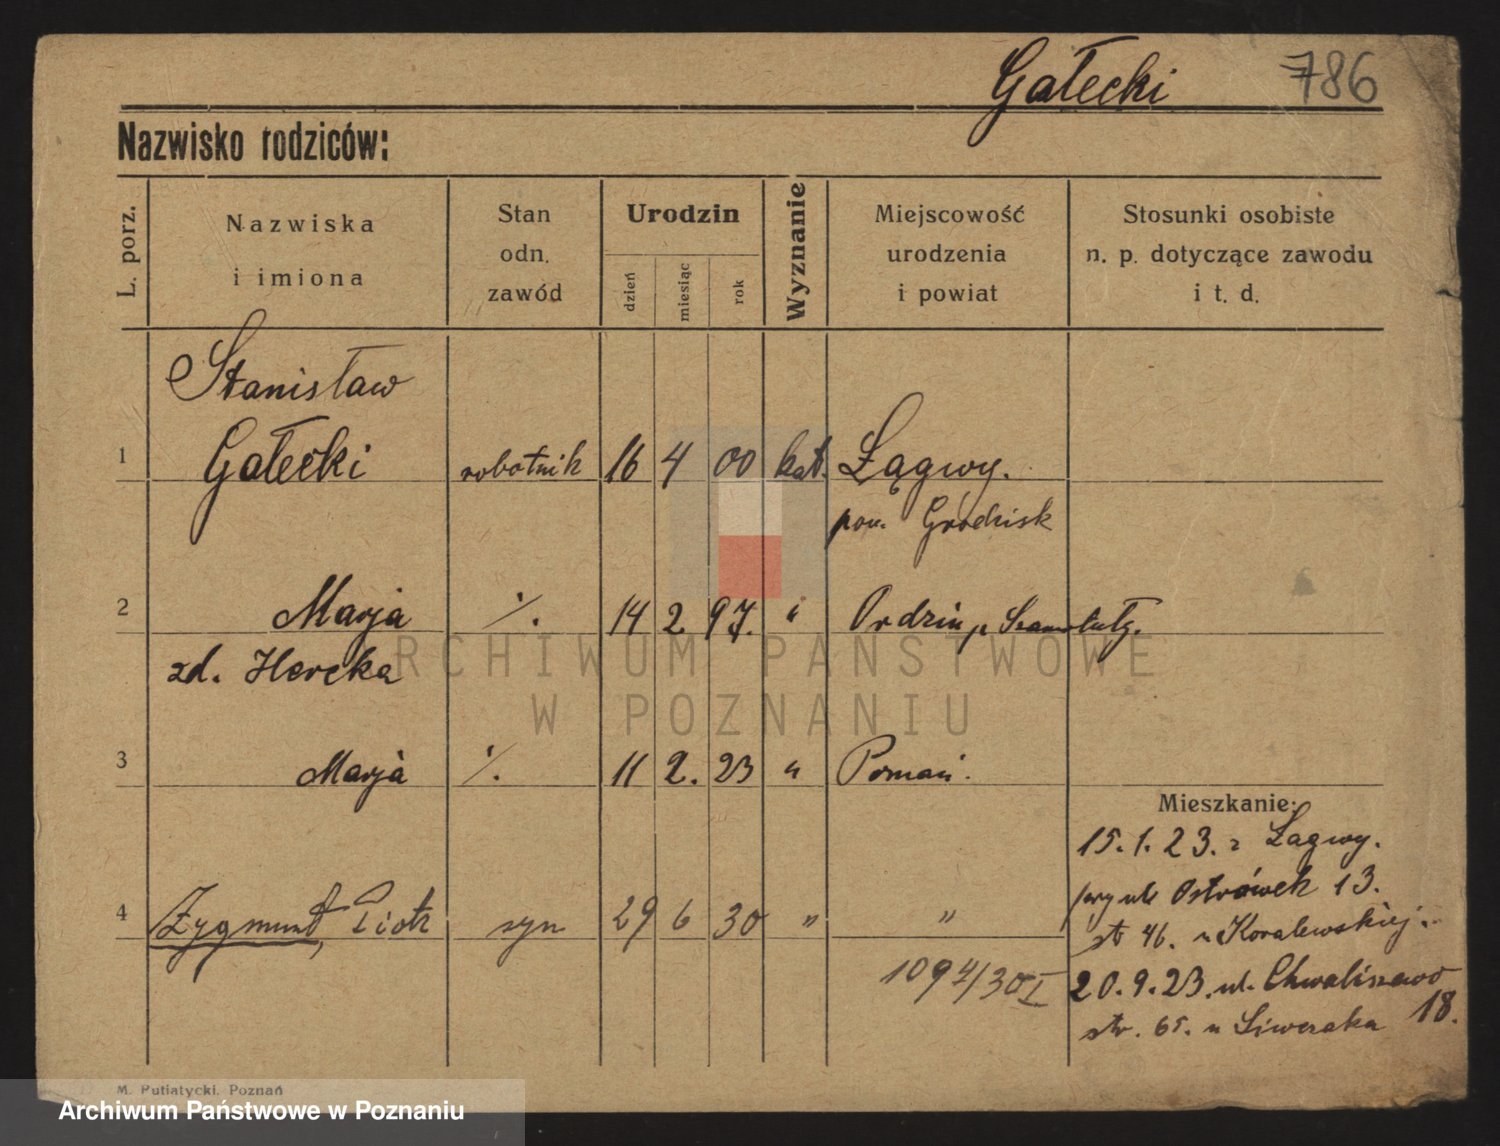 Gałecki 786
Nazwisko rodziców:
L. porz.
Nazwiska
i imiona
Stan
odn.
zawód
Urodzin
dzień
miesiąc
rok
Wyznanie
Miejscowość
urodzenia
i powiat
Stosunki osobiste
n. p. dotyczące zawodu
i t. d.
Stanisław
1 Gałecki robotnik 16 4 00 kat. Łągwy.
pow. Grodzisk
2 Marja ·/. 14 2. 97. " Ordzin p. Szamotuły.
zd. Hercka
3 Marja ·/. 11 2. 23 " Poznań.
4 Zygmunt, Piotr syn 29 6 30 " "
1094/30 I
Mieszkanie:
15.1.23. z Łagwy.
przy ul. Ostrówek 13.
str 46. u Koralewskiej.
20.9.23. ul. Chwaliszewo 18.
str. 65. u Siweraka
M. Putiatycki. Poznań
ARCHIWUM PAŃSTWOWE
W POZNANIU
Archiwum Państwowe w Poznaniu